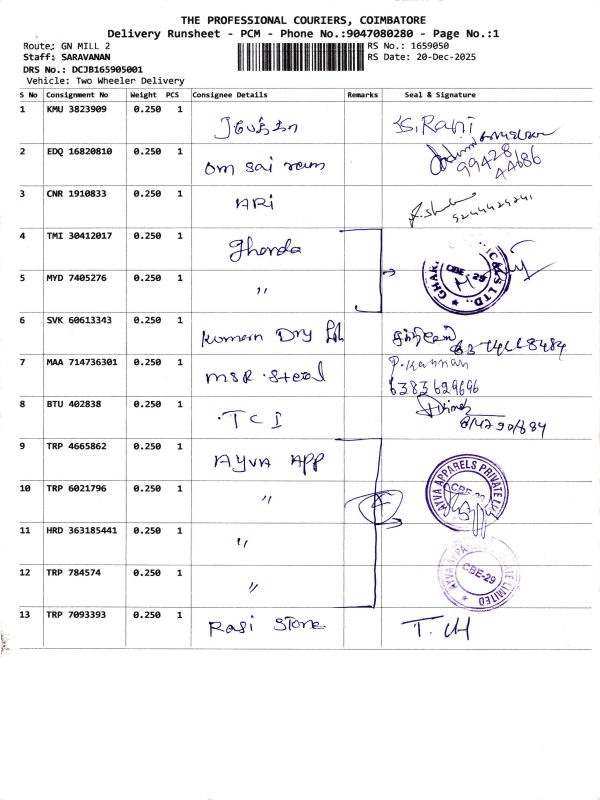 THE PROFESSIONAL COURIERS, COIMBATORE
Delivery Runsheet - PCM - Phone No.:9047080280 - Page No.:1
Route: GN MILL 2
RS No.: 1659050
Staff: SARAVANAN
RS Date: 20-Dec-2025
DRS No.: DCJB165905001
Vehicle: Two Wheeler Delivery
S No Consignment No Weight PCS Consignee Details Remarks Seal & Signature
1 KMU 3823909 0.250 1 S.Rani
2 EDQ 16820810 0.250 1 om sai ram 99428 44686
3 CNR 1910833 0.250 1 ARi
4 TMI 30412017 0.250 1 CBE-29
5 MYD 7405276 0.250 1 "
6 SVK 60613343 0.250 1 Dry
7 MAA 714736301 0.250 1 MSR Steel P. Kannan
6383629696
8 BTU 402838 0.250 1 TCI
9 TRP 4665862 0.250 1 AYVA APP AYVA APPARELS PRIVATE
10 TRP 6021796 0.250 1 "
11 HRD 363185441 0.250 1 "
12 TRP 784574 0.250 1 " CBE-29 LIMITED
13 TRP 7093393 0.250 1 Rasi Store